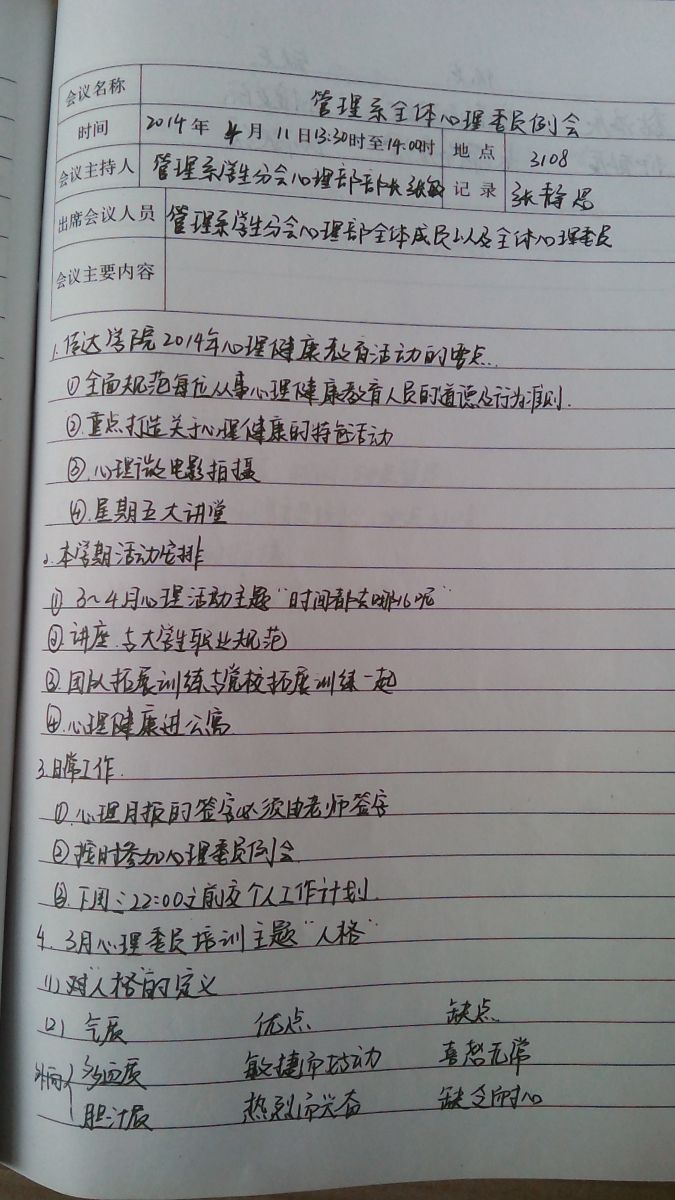 会议名称 管理系全体心理委员例会
时间 2014年4月11日13:30时至14:00时 地点 3108
会议主持人 管理系学生分会心理部部长张敏 记录 张静思
出席会议人员 管理系学生分会心理部全体成员以及全体心理委员
会议主要内容
1.传达学院2014年心理健康教育活动的要点.
①全面规范每位从事心理健康教育人员的道德及行为准则.
②.重点打造关于心理健康的特色活动
③.心理微电影拍摄
④.星期五大讲堂
2.本学期活动安排
① 3~4月心理活动主题"时间都去哪儿呢"
②讲座.与大学生职业规范
③团队拓展训练与党校拓展训练一起
④.心理健康进公寓
3.日常工作.
①.心理月报的签字必须由老师签字
②按时参加心理委员例会
③.下周三22:00之前交个人工作计划.
4. 3月心理委员培训主题"人格"
(1)对"人格"的定义
(2) 气质 优点 缺点
外向 多血质 敏捷而好动 喜怒无常
胆汁质 热烈而兴奋 缺乏耐心